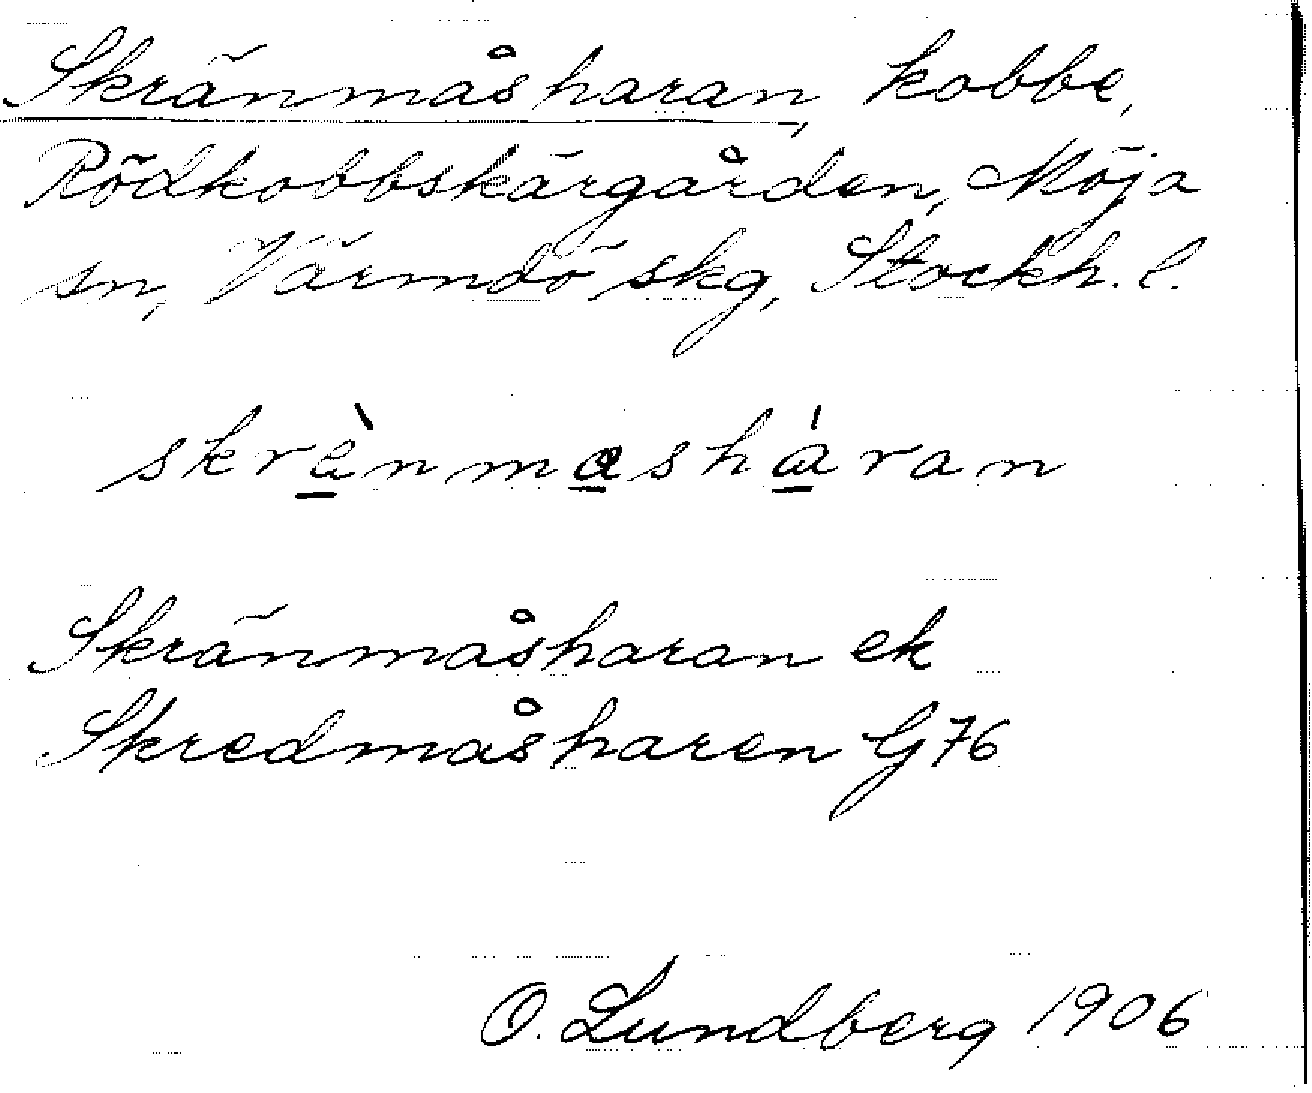 Skränmåsharan, kobbe,
Rödkobbskärgården, Möja
sn, Värmdö skg, Stockh. l.
skrä̀nmasháran
Skränmåsharan ek
Skredmåsharen G76
O. Lundberg 1906